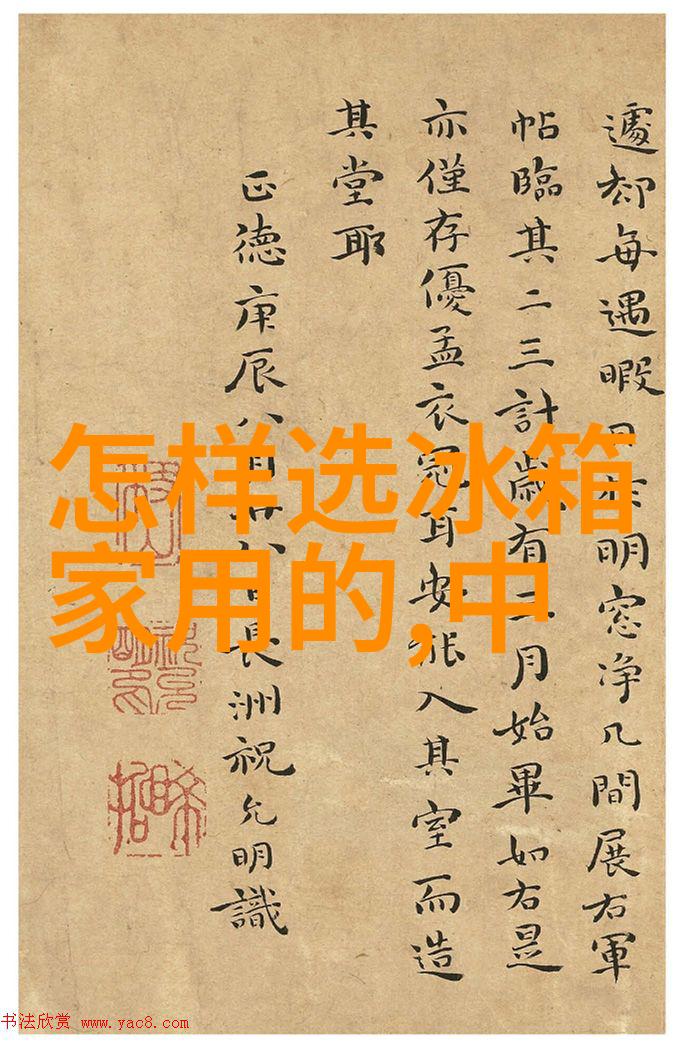 遽却每遇暇日於明窓净几間展右軍
帖臨其二三計歲有二月始畢如右是
亦僅存優孟衣冠耳安能入其室而造
其堂耶
正德庚辰八月廿八日長洲祝允明識
怎样选冰箱
家用的,中
书法欣赏 www.yac8.com